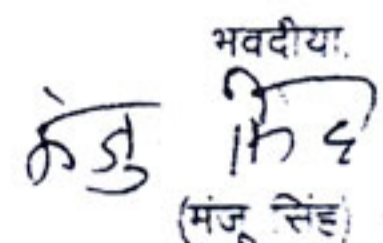 भवदीया.
मंजु सिंह
(मंजू सिंह)